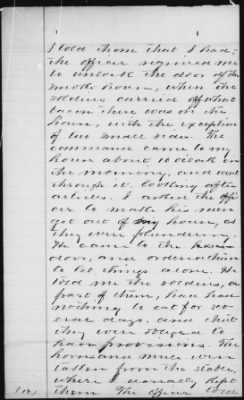 I told them that I had;
the officer required me
to unlock the door of the
smoke house, when the
soldiers carried off what
bacon there was in the
house, with the exception
of two small sides. The
command came to my
house about 10 o'clock in
the morning, and went
through it, looking after
articles. I asked the offi-
cer to make his men
get out of my house, as
they were plundering.
He came to the
door, and ordered them
to let things alone. He
told me the soldiers, a
part of them, had had
nothing to eat for sev-
eral days, and that
they were obliged to
have provisions. The
horses and mules were
taken from the stable,
where I usually kept
them. The officer told